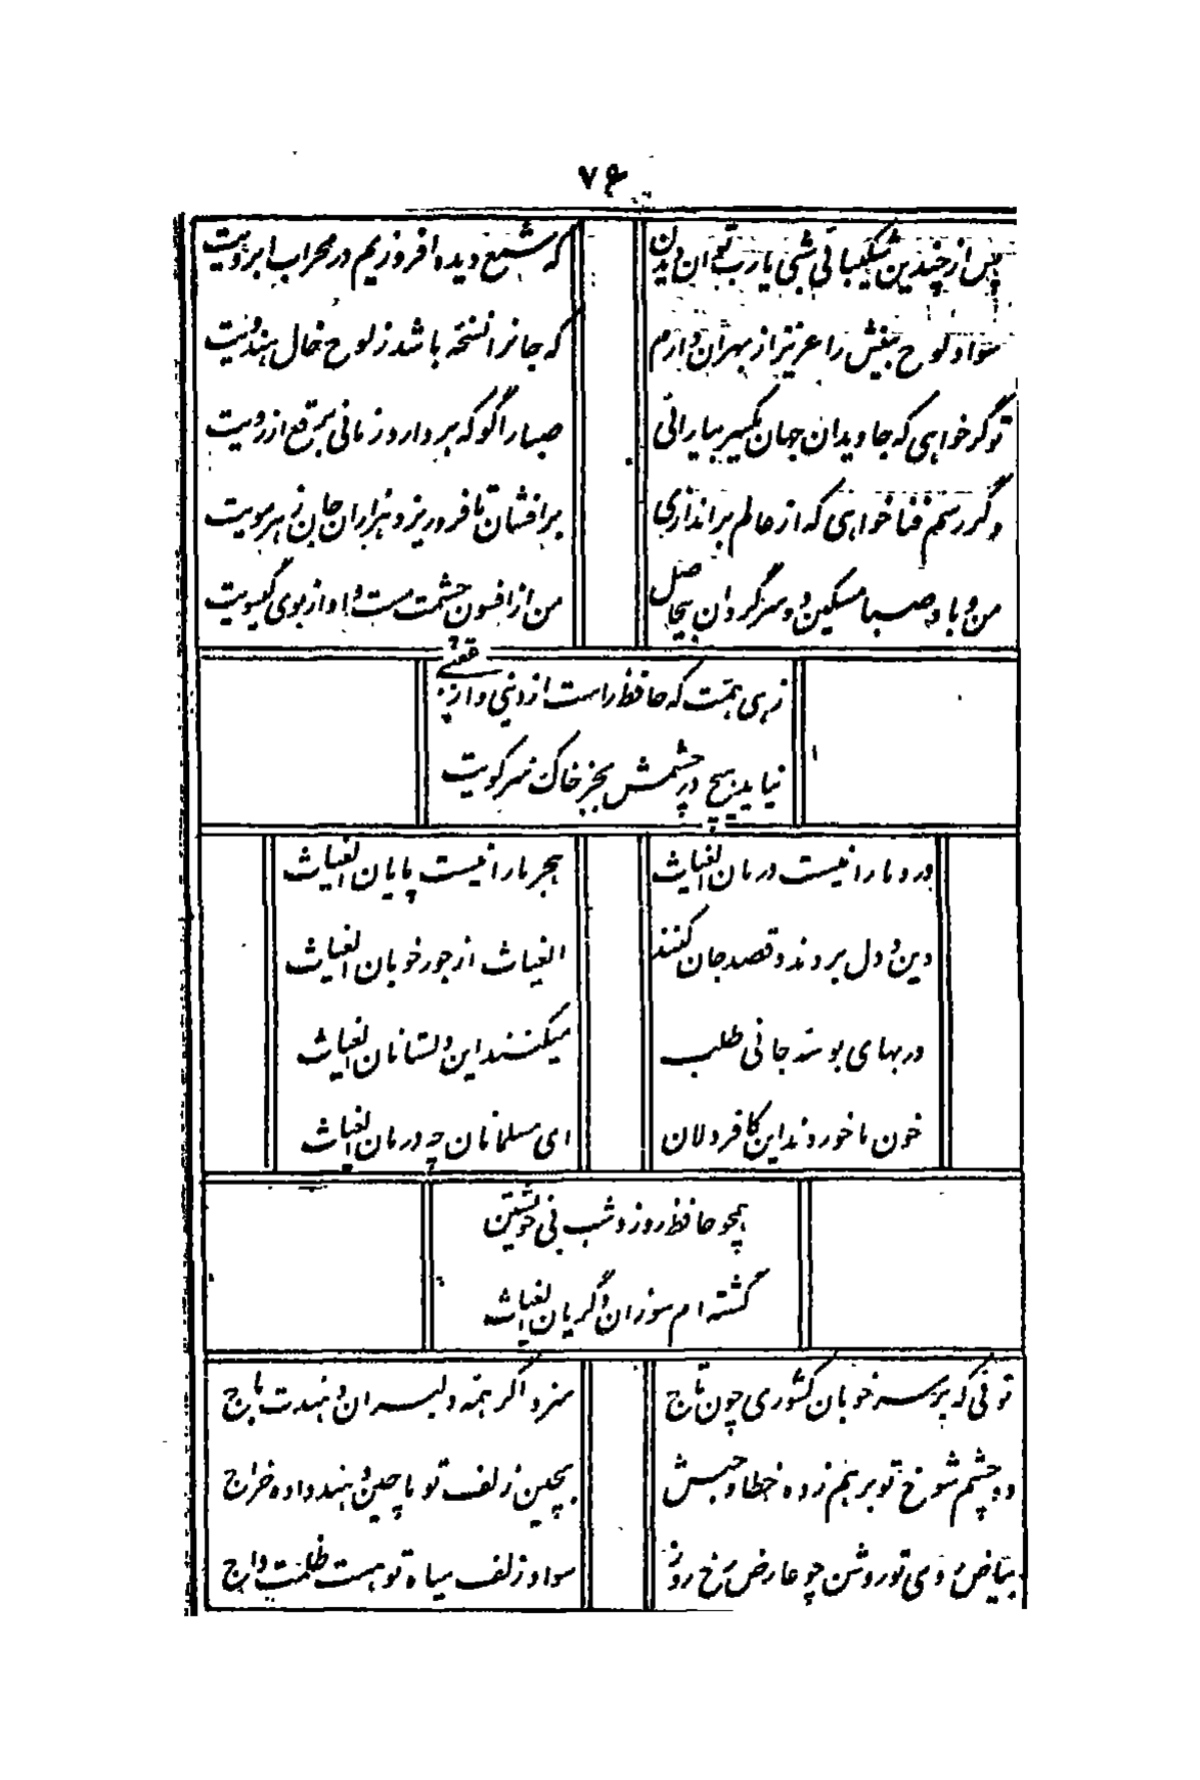 ۷۶
پس از چندین شکیبائی شبی یارب توان دیدن
که شمع دیده افروزیم در محراب ابرویت
سواد لوح بینش را عزیز از بهر آن دارم
که جانرا نسخه باشد ز لوح خال هندویت
تو گر خواهی که جاویدان جهان یکسر بیارائی
صبا را گو که بردارد زمانی برقع از رویت
وگر رسم فنا خواهی که از عالم براندازی
برافشان تا فرو ریزد هزاران جان ز هر مویت
من و باد صبا مسکین دو سرگردان بیحاصل
من از افسون چشمت مست و او از بوی گیسویت
زهی همت که حافظ راست از دنیی و از عقبی
نیاید هیچ در چشمش بجز خاک سر کویت
درد ما را نیست درمان الغیاث
هجر ما را نیست پایان الغیاث
دین و دل بردند و قصد جان کنند
الغیاث از جور خوبان الغیاث
در بهای بوسه جانی طلب
میکنند این دلستانان الغیاث
خون ما خوردند این کافر دلان
ای مسلمانان چه درمان الغیاث
همچو حافظ روز و شب بی خویشتن
گشته ام سوزان و گریان الغیاث
توئی که بر سر خوبان کشوری چون تاج
سزد اگر همه دلبران دهندت باج
دو چشم شوخ تو برهم زده خطا و حبش
بچین زلف تو ماچین و هند داده خراج
بیاض روی تو روشن چو عارض رخ روز
سواد زلف سیاه تو هست ظلمت داج